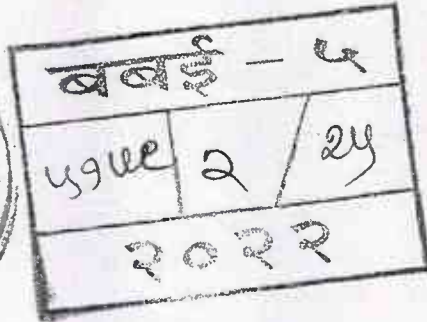 बबई - ५
५१५९ २ / २५
२०२२